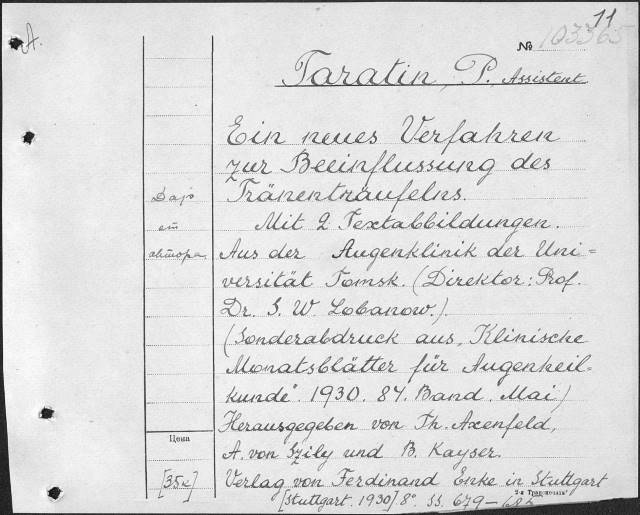 11
A.
№ 103365
Taratin, P., Assistent
Ein neues Verfahren
zur Beeinflussung des
Tränenträufelns.
Mit 2 Textabbildungen.
Aus der Augenklinik der Uni=
versität Tomsk. (Direktor: Prof.
Dr. S. W. Lobanow.)
(Sonderabdruck aus „Klinische
Monatsblätter für Augenheil=
kunde". 1930. 84. Band. Mai)
Herausgegeben von Th. Axenfeld,
A. von Szily und B. Kayser.
Verlag von Ferdinand Enke in Stuttgart
[Stuttgart, 1930] 8° SS. 679–682
от
автора
Цена
[35к]